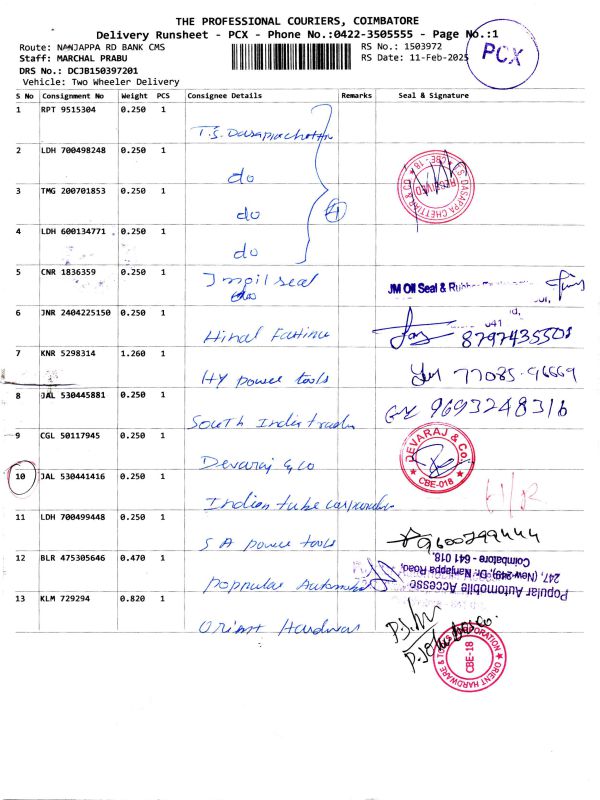 THE PROFESSIONAL COURIERS, COIMBATORE
Delivery Runsheet - PCX - Phone No.:0422-3505555 - Page No.:1
Route: NANJAPPA RD BANK CMS
RS No.: 1503972
Staff: MARCHAL PRABU
RS Date: 11-Feb-2025
PCX
DRS No.: DCJB150397201
Vehicle: Two Wheeler Delivery
S No Consignment No Weight PCS Consignee Details Remarks Seal & Signature
1 RPT 9515304 0.250 1
2 LDH 700498248 0.250 1 do
3 TMG 200701853 0.250 1 do
4 LDH 600134771 0.250 1 do
4
5 CNR 1836359 0.250 1 seal
JM Oil Seal &
6 JNR 2404225150 0.250 1
641
7 KNR 5298314 1.260 1 HY power tools
8 JAL 530445881 0.250 1 South India
9693248316
9 CGL 50117945 0.250 1 Devaraj & Co
DEVARAJ & Co.
CBE-018
10 JAL 530441416 0.250 1 Indian tube
11 LDH 700499448 0.250 1 S A power tools
9600299444
12 BLR 475305646 0.470 1
Popular Automobile
247, (New-249), Dr. Nanjappa Road,
Coimbatore - 641 018.
13 KLM 729294 0.820 1 Orient
ORIENT HARDWARE &
CBE-18